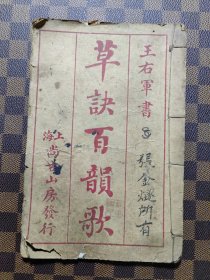 王右軍書
草訣百韻歌
上海
尚古山房發行
張金燧所有